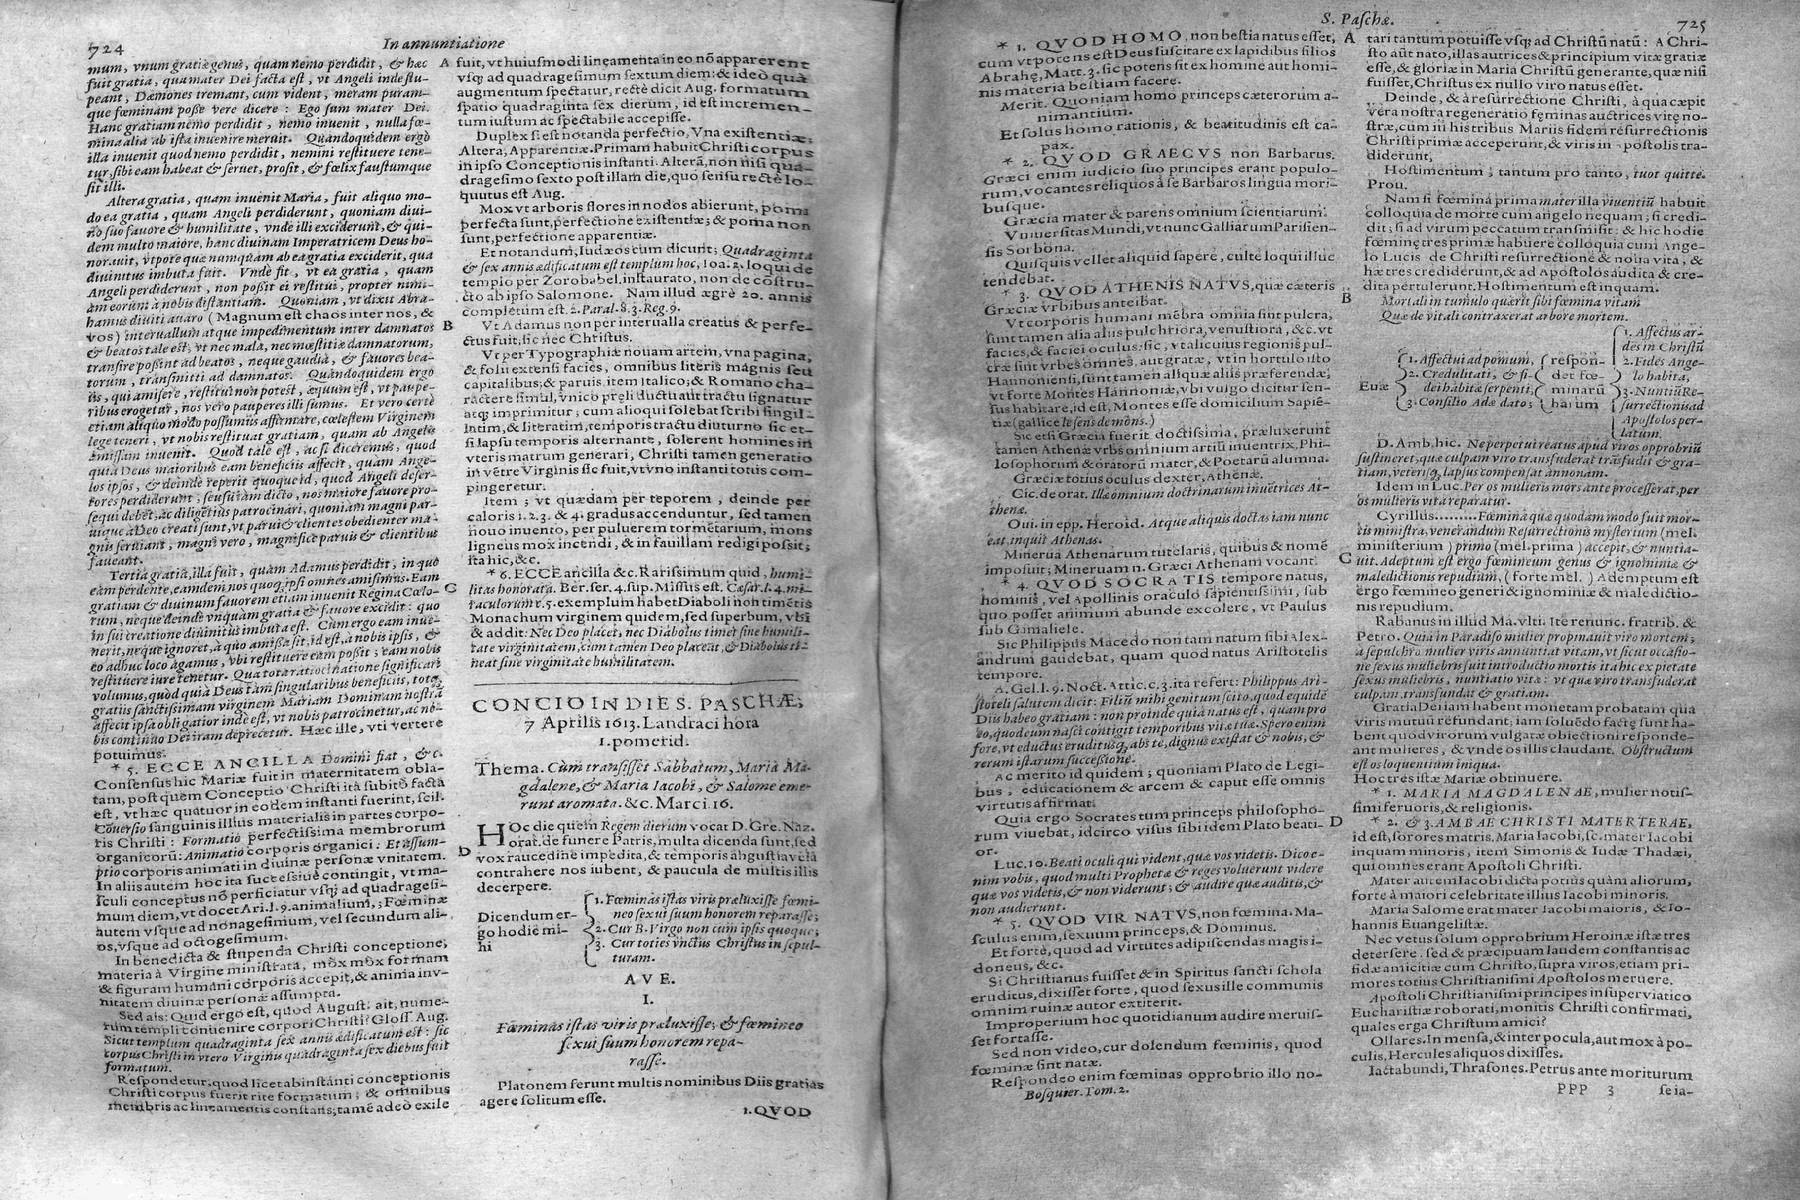 724
In annuntiatione
mum, vnum gratiæ genus, quam nemo perdidit, & hæc
fuit gratia, qua mater Dei facta est, vt Angeli inde stu-
peant, Dæmones tremant, cum vident, meram puram-
que fœminam posse vere dicere : Ego sum mater Dei.
Hanc gratiam nemo perdidit, nemo inuenit, nulla fœ-
mina alia ab ista inuenire meruit. Quandoquidem ergò
illa inuenit quod nemo perdidit, nemini restituere tene-
tur, sibi eam habeat & seruet, prosit, & fœlix faustumque
sit illi.
Altera gratia, quam inuenit Maria, fuit aliquo mo-
do ea gratia, quam Angeli perdiderunt, quoniam diui-
no suo fauore & humilitate, vnde illi exciderunt, & qui-
dem multo maiore, hanc diuinam Imperatricem Deus ho-
norauit, vtpote quæ numquàm ab ea gratia exciderit, qua
diuinitus imbuta fuit. Vnde fit, vt ea gratia, quam
Angeli perdiderunt, non possit ei restitui, propter nimi-
am eorum à nobis distantiam. Quoniam, vt dixit Abra-
hamus diuiti auaro (Magnum est chaos inter nos, &
vos) interuallum atque impedimentum inter damnatos
& beatos tale est, vt nec mala, nec mœstitiæ damnatorum,
transire possint ad beatos, neque gaudia, & fauores bea-
torum, transmitti ad damnatos. Quandoquidem ergò
iis, qui amisere, restitui non potest, æquum est, vt paupe-
ribus erogetur, nos vero pauperes illi sumus. Et vero certè
etiam aliquo modo possumus affirmare, cælestem Virginem
lege teneri, vt nobis restituat gratiam, quam ab Angelis
amissam inuenit. Quod tale est, ac si diceremus, quod
quia Deus maioribus eam beneficiis affecit, quam Ange-
los ipsos, & deinde reperit quoque id, quod Angeli deser-
tores perdiderunt, seu suum dicto, nos maiore fauore pro-
sequi debet, ac diligetius patrocinari, quoniam magni par-
uique à Deo creati sunt, vt parui & clientes obedienter ma-
gnis seruiant, magni vero, magnifice paruis & clientibus
faueant.
Tertia gratia, illa fuit, quàm Adamus perdidit, in quo
eam perdente, eamdem nos quoq; ipsi omnes amisimus. Eam
gratiam & diuinum fauorem etiam inuenit Regina Cœlo-
rum, neque deinde vnquàm gratia & fauore excidit: quo
in sui creatione diuinitus imbuta est. Cum ergo eam inue-
nerit, neque ignoret, à quo amissa sit, id est, à nobis ipsis, &
eo adhuc loco agamus, vbi restituere eam possit; eam nobis
restituere iure tenetur. Qua tota ratiocinatione significare
volumus, quòd quià Deus tàm singularibus beneficiis, totq;
gratiis sanctissimam virginem Mariam Dominam nostrã
affecit ipsa obligatior inde est, vt nobis patrocinetur, ac no-
bis continuo Dei iram deprecetur. Hæc ille, vti vertere
potuimus.
* 5. ECCE ANCILLA Domini fiat, & c.
Consensus hic Mariæ fuit in maternitatem obla-
tam, post quem Conceptio Christi ità subitò facta
est, vt hæc quatuor in eodem instanti fuerint, scil.
Cõuersio sanguinis illius materialis in partes corpo-
ris Christi : Formatio perfectissima membrorum
organicorũ: Animatio corporis organici : Et assum-
ptio corporis animati in diuinæ personæ vnitatem.
In aliis autem hoc ita successiuè contingit, vt ma-
sculi conceptus nõ perficiatur vsq; ad quadragesi-
mum diem, vt docet Ari. l. 9. animalium; Fœminæ
autem vsque ad nonagesimum, vel secundum ali-
os, vsque ad octogesimum.
In benedicta & stupenda Christi conceptione,
materia à Virgine ministrata, mox mox formam
& figuram humani corporis accepit, & anima inv-
nitatem diuinæ personæ assumpta.
Sed ais: Quid ergo est, quod August. ait, nume-
rum templi conuenire corpori Christi? Gloss Aug.
Sicut templum quadraginta sex annis ædificatum est : sic
corpus Christi in vtero Virginis quadraginta sex diebus fuit
formatum.
Respondetur: quod licet ab instanti conceptionis
Christi corpus fuerit rite formatum ; & omnibus
membris ac lineamentis constans; tamẽ adeò exile
A fuit, vt huiusmodi lineamenta in eo nõ apparerent
vsq; ad quadragesimum sextum diem: & ideò quà
augmentum spectatur, rectè dicit Aug. formatum
spatio quadraginta sex dierum, id est incremen-
tum iustum ac spectabile accepisse.
Duplex si est notanda perfectio, Vna existentiæ;
Altera, Apparentiæ. Primam habuit Christi corpus
in ipso Conceptionis instanti. Alterã, non nisi qua-
dragesimo sexto post illam die, quo sensu rectè lo-
quutus est Aug.
Mox vt arboris flores in nodos abierunt, poma
perfecta sunt, perfectione existentiæ; & poma non
sunt, perfectione apparentiæ.
Et notandum, Iudæos cum dicunt; Quadraginta
& sex annis ædificatum est templum hoc, Ioa. 2. loqui de
templo per Zorobabel. instaurato, non de cõstru-
cto ab ipso Salomone. Nam illud ægrè 20. annis
completum est. 2. Paral. 8. 3. Reg. 9.
B Vt Adamus non per interualla creatus & perfe-
ctus fuit, sic nec Christus.
Vt per Typographiæ nouam artem, vna pagina,
& folii extensi facies, omnibus literis magnis seu
capitalibus; & paruis, item Italico; & Romano cha-
ractere simul, vnico preli ductu aut tractu signatur
atq; imprimitur ; cum alioqui solebat scribi singil-
latim, & literatim, temporis tractu diuturno sic et-
si lapsu temporis alternante, solerent homines in
vteris matrum generari, Christi tamen generatio
in vẽtre Virginis sic fuit, vt vno instanti totus com-
pingeretur.
Item ; vt quædam per teporem, deinde per
caloris 1. 2. 3. & 4. gradus accenduntur, sed tamen
nouo inuento, per puluerem tormẽtarium, mons
ligneus mox incendi, & in fauillam redigi possit;
ita hic, &c.
C * 6. ECCE ancilla &c. Rarissimum quid, humi-
litas honorata. Ber. ser. 4. sup. Missus est. Cæsar. l. 4. mi-
raculorum c. 5. exemplum habet Diaboli non timẽtis
Monachum virginem quidem, sed superbum, vbi
& addit: Nec Deo placet, nec Diabolus timet sine humili-
tate virginitatem, cum tamen Deo placeat, & Diabolus ti-
meat sine virginitate humilitatem.
CONCIO IN DIE S. PASCHÆ;
7 Aprilis 1613. Landraci hora
1. pomerid.
Thema. Cùm transisset Sabbatum, Maria Ma-
gdalene, & Maria Iacobi, & Salome eme-
runt aromata. &c. Marci. 16.
HOc die quem Regem dierum vocat D. Gre. Naz.
orat. de funere Patris, multa dicenda sunt, sed
D vox raucedine impedita, & temporis angustia vela
contrahere nos iubent, & paucula de multis illis
decerpere.
Dicendum er-
go hodiè mi-
hi
1. Fœminas istas viris præluxisse fœmi-
neo sexui suum honorem reparasse;
2. Cur B. Virgo non cum ipsis quoque;
3. Cur toties vnctus Christus in sepul-
turam.
AVE.
I.
Fæminas istas viris præluxisse; & fœmineo
sexui suum honorem repa-
rasse.
Platonem ferunt multis nominibus Diis gratias
agere solitum esse.
1. QVOD
S. Paschæ.
725
* 1. QVOD HOMO, non bestia natus esset,
cum vt potens est Deus suscitare ex lapidibus filios
Abrahę, Matt. 3. sic potens sit ex homine aut homi-
nis materia bestiam facere.
Merit. Quoniam homo princeps cæterorum a-
nimantium.
Et solus homo rationis, & beatitudinis est ca-
pax.
* 2. QVOD GRAECVS non Barbarus.
Græci enim iudicio suo principes erant populo-
rum, vocantes reliquos à se Barbaros lingua mori-
busque.
Græcia mater & parens omnium scientiarum.
Vniuersitas Mundi, vt nunc Galliarum Parisien-
sis Sorbona.
Quisquis vellet aliquid sapere, culte loqui illuc
tendebat.
* 3. QVOD ATHENIS NATVS, quæ cæteris
Græciæ vrbibus anteibat.
Vt corporis humani mẽbra omnia sint pulcra,
sunt tamen alia aliis pulchriora, venustiora, &c. vt
facies, & faciei oculus: sic, vt alicuius regionis pul-
cræ sint vrbes omnes, aut gratæ, vt in hortulo isto
Hannoniensi, sunt tamen aliquæ aliis præferendæ;
vt forte Montes Hannoniæ, vbi vulgo dicitur sen-
sus habitare, id est, Montes esse domicilium Sapiẽ-
tiæ (gallice le sens de mons.)
Sic etsi Græcia fuerit doctissima, præluxerunt
tamen Athenæ vrbs omnium artiũ inuentrix, Phi-
losophorum & oratorũ mater, & Poetarũ alumna.
Græciæ totius oculus dexter, Athenæ.
Cic. de orat. Illa omnium doctrinarum inuẽtrices At-
thenæ.
Oui. in epp. Heroid. Atque aliquis doctas iam nunc
eat, inquit Athenas.
Minerua Athenarum tutelaris, quibus & nomẽ
imposuit; Mineruam n. Græci Athenam vocant.
* 4. QVOD SOCRATIS tempore natus,
hominis, vel Apollinis oraculo sapientissimi, sub
quo posset animum abunde excolere, vt Paulus
sub Gamaliele.
Sic Philippus Macedo non tam natum sibi Alex-
andrum gaudebat, quam quod natus Aristotelis
tempore.
A. Gel. l. 9. Noct. Attic. c. 3. ita refert: Philippus Ari-
stoteli salutem dicit: Filiũ mihi genitum scito, quod equidẽ
Diis habeo gratiam : non proinde quia natus est, quam pro
eo, quod eum nasci contigit temporibus vitæ tuæ. Spero enim
fore, vt eductus eruditusq; abs te, dignus existat & nobis, &
rerum istarum successione.
Ac merito id quidem ; quoniam Plato de Legi-
bus, educationem & arcem & caput esse omnis
virtutis affirmat.
Quia ergo Socrates tum princeps philosopho-
rum viuebat, idcirco visus sibi idem Plato beati-
or.
Luc. 10. Beati oculi qui vident, quæ vos videtis. Dico e-
nim vobis, quod multi Prophetæ & reges voluerunt videre
quæ vos videtis, & non viderunt ; & audire quæ auditis, &
non audierunt.
* 5. QVOD VIR NATVS, non fœmina. Ma-
sculus enim, sexuum princeps, & Dominus.
Et forte, quod ad virtutes adipiscendas magis i-
doneus, &c.
Si Christianus fuisset & in Spiritus sancti schola
eruditus, dixisset forte, quod sexus ille communis
omnim ruinæ autor extiterit.
Improperium hoc quotidianum audire meruis-
set fortasse.
Sed non video, cur dolendum fœminis, quod
fœminæ sint natæ.
Respondeo enim fœminas opprobrio illo no-
Bosquier. Tom. 2.
A tari tantum potuisse vsq; ad Christũ natũ : A Chri-
sto aũt nato, illas autrices & principium vitæ gratiæ
esse, & gloriæ in Maria Christũ generante, quæ nisi
fuisset, Christus ex nullo viro natus esset.
Deinde, & à resurrectione Christi, à qua cæpit
vera nostra regeneratio fęminas auctrices vitę no-
stræ, cum in his tribus Mariis fidem resurrectionis
Christi primæ acceperunt, & viris in Apostolis tra-
diderunt;
Hostimentum ; tantum pro tanto, tuot quitte.
Prou.
Nam si fœmina prima mater illa viuentiũ habuit
colloquia de morte cum angelo nequam; si credi-
dit; si ad virum peccatum transmisit: & hic hodie
fœminę tres primæ habuere colloquia cum Ange-
lo Lucis de Christi resurrectione & noua vita, &
hæ tres crediderunt, & ad Apostolos audita & cre-
dita pertulerunt. Hostimentum est inquam.
B Mortali in tumulo quærit sibi fœmina vitam
Quæ de vitali contraxerat arbore mortem.
Euæ
1. Affectui ad pomum,
2. Credulitati, & fi-
dei habitæ serpenti;
3. Consilio Adæ dato;
respon-
det fœ-
minarũ
harum
1. Affectus ar-
dẽs in Christũ
2. Fides Ange-
lo habita,
3. Nuntiũ Re-
surrectionis ad
Apostolos per-
latum.
D. Amb. hic. Ne perpetui reatus apud viros opprobriũ
sustineret, quæ culpam viro transfuderat trãsfudit & gra-
tiam, veterisq; lapsus compensat annonam.
Idem in Luc. Per os mulieris mors ante processerat, per
os mulieris vita reparatur.
Cyrillus......... Fœmina quæ quodam modo fuit mor-
tis ministra, venerandum Resurrectionis mysterium (mel.
ministerium ) primo (mel. prima ) accepit, & nuntia-
C uit. Adeptum est ergo fœmineum genus & ignominiæ &
maledictionis repudium, (forte mel. ) Ademptum est
ergo Fœmineo generi & ignominiæ & maledictio-
nis repudium.
Rabanus in illud Ma. vlti. Ite renunc. fratrib. &
Petro. Quia in Paradiso mulier propinauit viro mortem;
à sepulchro mulier viris annuntiat vitam, vt sicut occasio-
ne sexus muliebris fuit introductio mortis ita hic ex pietate
sexus muliebris, nuntiatio vitæ : vt quæ viro transfuderat
culpam, transfundat & gratiam.
Gratia Dei iam habent monetam probatam qua
viris mutuũ refundant; iam soluẽdo factę sunt ha-
bent quod virorum vulgatæ obiectioni responde-
ant mulieres, & vnde os illis claudant. Obstructum
est os loquentium iniqua.
Hoc tres istæ Mariæ obtinuere.
* 1. MARIA MAGDALENAE, mulier notis-
simi feruoris, & religionis.
D * 2. & 3. AMBAE CHRISTI MATERTERAE,
id est, sorores matris. Maria Iacobi, sc. mater Iacobi
inquam minoris, item Simonis & Iudæ Thadæi,
qui omnes erant Apostoli Christi.
Mater autem Iacobi dicta potius quàm aliorum,
forte à maiori celebritate illius Iacobi minoris.
Maria Salome erat mater Iacobi maioris, & Io-
hannis Euangelistæ.
Nec vetus solum opprobrium Heroinæ istæ tres
detersere, sed & præcipuam laudem constantis ac
fidæ amicitiæ cum Christo, supra viros, etiam pri-
mores totius Christianismi Apostolos meruere.
Apostoli Christianismi principes insuper viatico
Eucharistiæ roborati, monitis Christi confirmati,
quales erga Christum amici?
Ollares. In mensa, & inter pocula, aut mox à po-
culis, Hercules aliquos dixisses.
Iactabundi, Thrasones. Petrus ante moriturum
PPP 3
se ia-